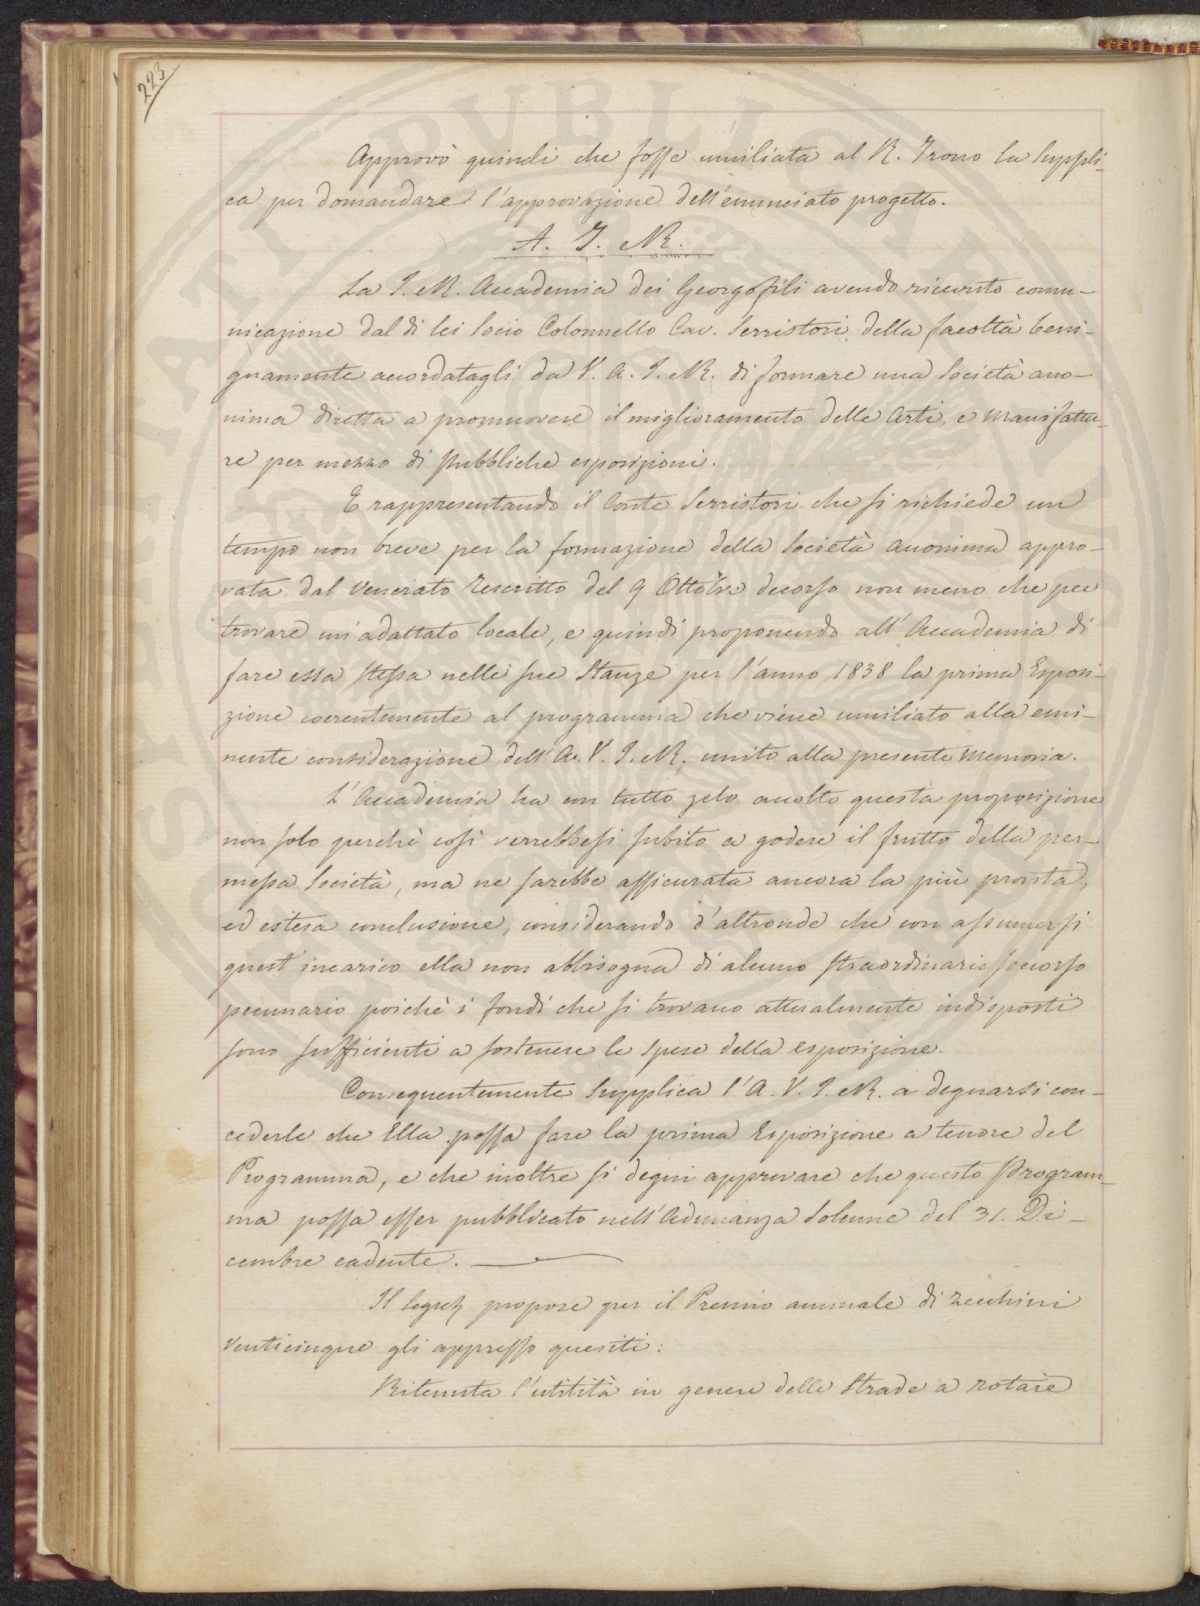 223
Approvò quindi che fosse umiliata al R. Trono la suppli-
ca per domandare l'approvazione dell'enunciato progetto.
A. I. e R.
La I. e R. Accademia dei Georgofili avendo ricevuto comu-
nicazione dal di lei Socio Colonnello Cav. Serristori della facoltà beni-
gnamente accordatagli da V. A. I. e R. di formare una Società ano-
nima diretta a promuovere il miglioramento delle Arti, e Manifattu-
re per mezzo di pubbliche esposizioni.
E rappresentando il Conte Serristori che si richiede un
tempo non breve per la formazione della Società Anonima appro-
vata dal Venerato Rescritto del 9 Ottobre decorso non meno che per
trovare un'adattato locale, e quindi proponendo all'Accademia di
fare essa stessa nelle sue Stanze per l'anno 1838 la prima Esposi-
zione coerentemente al programma che viene umiliato alla emi-
nente considerazione dell'A. V. I. e R. unito alla presente Memoria.
L'Accademia ha con tutto zelo accolto questa proposizione
non solo perchè così verrebbesi subito a godere il frutto della per-
messa Società, ma ne sarebbe assicurata ancora la più pronta,
ed estesa conclusione, considerando d'altronde che con assumersi
quest'incarico ella non abbisogna di alcuno straordinario soccorso
pecuniario poichè i fondi che si trovano attualmente indisposti
sono sufficienti a sostenere le spese della esposizione.
Conseguentemente Supplica l'A. V. I. e R. a degnarsi con-
cederle che Ella possa fare la prima Esposizione a tenore del
Programma, e che inoltre si degni approvare che questo Program-
ma possa esser pubblicato nell'Adunanza Solenne del 31. Di-
cembre cadente.
Il propose per il Premio annuale di Zecchini
Venticinque gli appresso quesiti:
Ritenuta l'utilità in genere delle Strade a rotaie